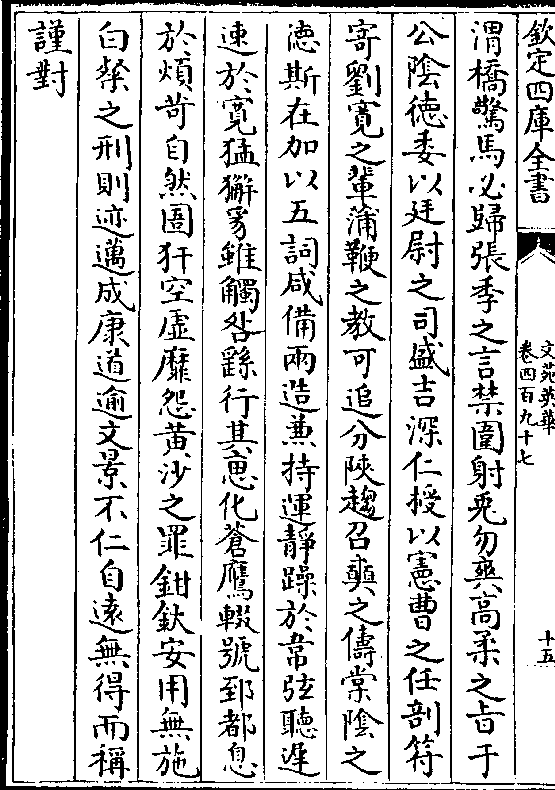 欽定四庫全書
文苑英華
卷四百九十七
十五
渭橋驚馬必歸張季之言禁圍射兎勿爽高柔之旨于
公隂徳委以廷尉之司盛吉深仁授以憲曹之任剖符
寄劉寛之輩蒲鞭之教可追分陜趨召奭之儔棠隂之
徳斯在加以五詞咸備兩造兼持運靜躁於韋弦聽遲
速於寛猛獬豸雖觸咎繇行其恩化蒼鷹輟號郅都息
於煩苛自然圄犴空虚靡怨黄沙之罪鉗釱安用無施
白粲之刑則迹邁成康道逾文景不仁自逺無得而稱
謹對